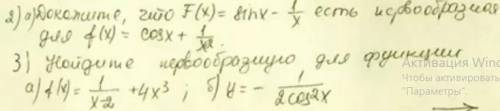 2) а) Докажите, что F(x) = sinx - 1/x есть первообразная
для f(x) = cosx + 1/x².
3) Найдите первообразную для функции
а) f(x) = 1/(x-2) + 4x³ ; б) y = - 1/(2cos²x)
Активация Win
Чтобы активировать
"Параметры".